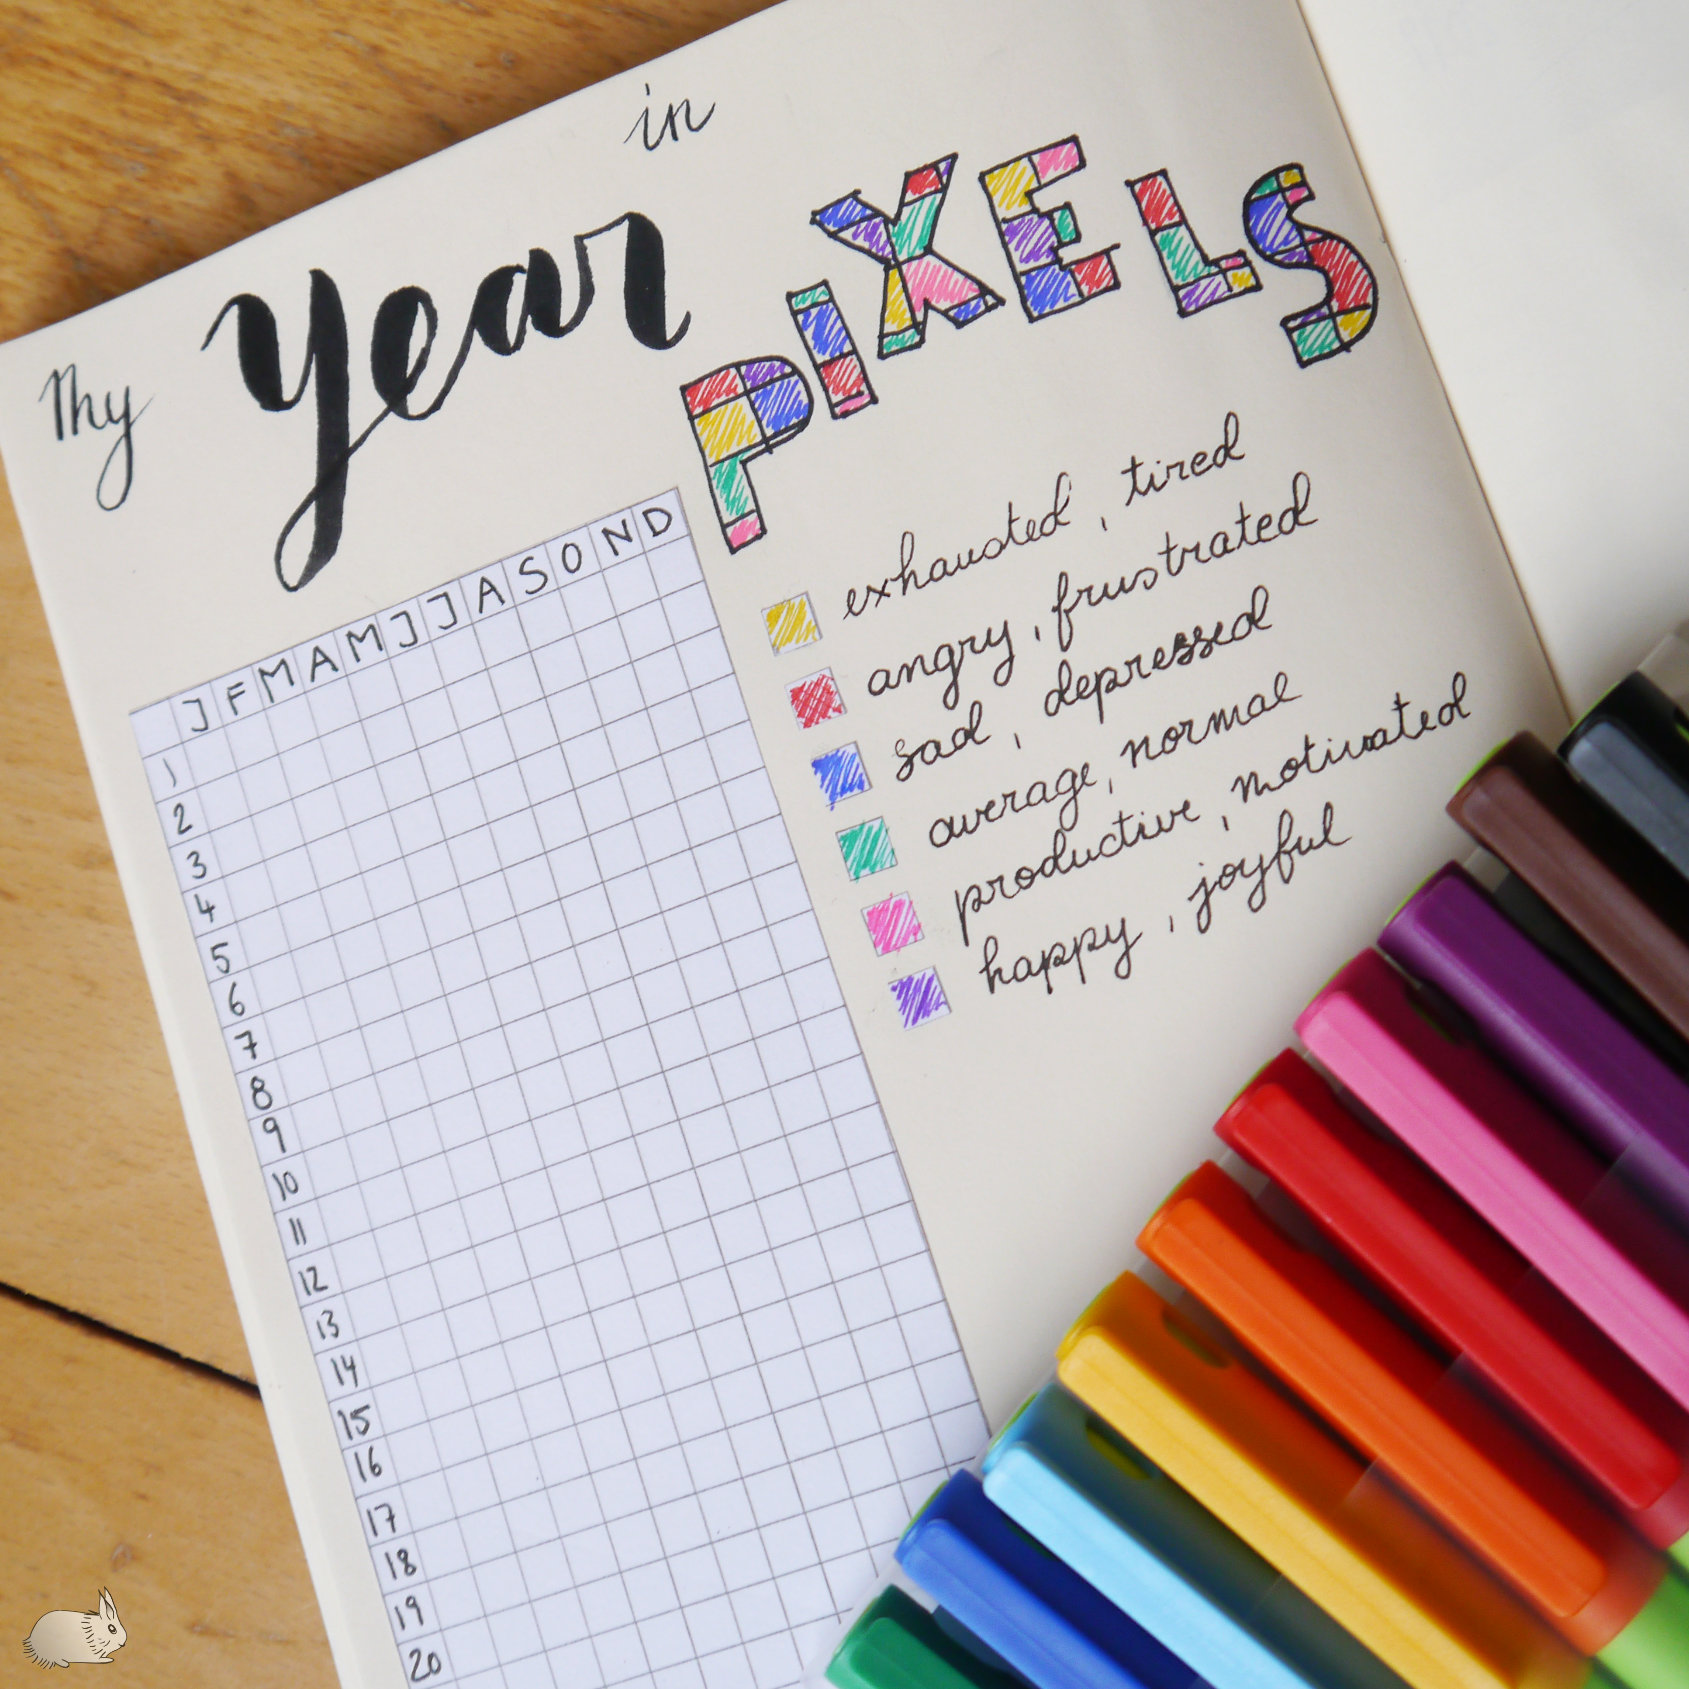 My Year in PIXELS
J F M A M J J A S O N D
1
2
3
4
5
6
7
8
9
10
11
12
13
14
15
16
17
18
19
20
exhausted, tired
angry, frustrated
sad, depressed
average, normal
productive, motivated
happy, joyful